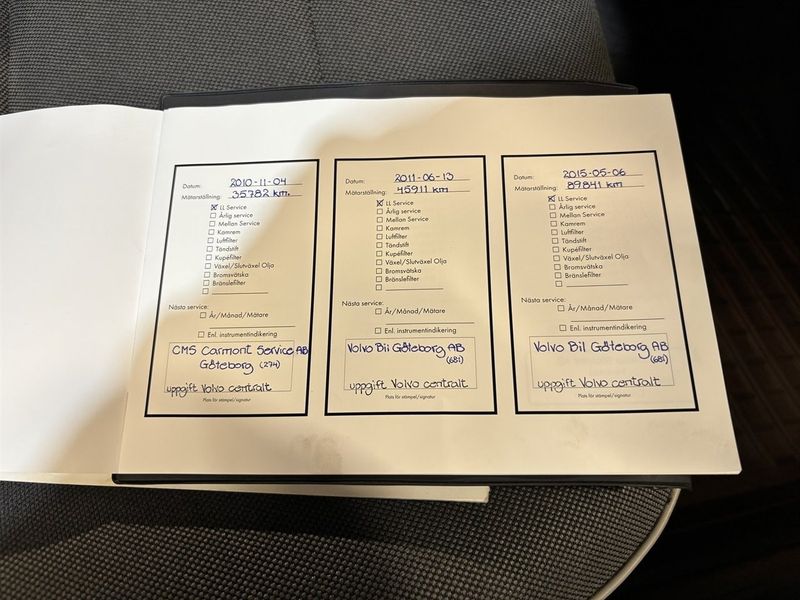 Datum: 2010-11-04
Mätarställning: 35782 km.
☒ LL Service
☐ Årlig service
☐ Mellan Service
☐ Kamrem
☐ Luftfilter
☐ Tändstift
☐ Kupéfilter
☐ Växel/Slutväxel Olja
☐ Bromsvätska
☐ Bränslefilter
☐
Nästa service:
☐ År/Månad/Mätare
☐ Enl. instrumentindikering
CMS Carmont Service AB
Göteborg (274)
uppgift Volvo centralt
Plats för stämpel/signatur
Datum: 2011-06-13
Mätarställning: 45911 km
☒ LL Service
☐ Årlig service
☐ Mellan Service
☐ Kamrem
☐ Luftfilter
☐ Tändstift
☐ Kupéfilter
☐ Växel/Slutväxel Olja
☐ Bromsvätska
☐ Bränslefilter
☐
Nästa service:
☐ År/Månad/Mätare
☐ Enl. instrumentindikering
Volvo Bil Göteborg AB
(681)
uppgift Volvo centralt
Plats för stämpel/signatur
Datum: 2015-05-06
Mätarställning: 89841 km
☒ LL Service
☐ Årlig service
☐ Mellan Service
☐ Kamrem
☐ Luftfilter
☐ Tändstift
☐ Kupéfilter
☐ Växel/Slutväxel Olja
☐ Bromsvätska
☐ Bränslefilter
☐
Nästa service:
☐ År/Månad/Mätare
☐ Enl. instrumentindikering
Volvo Bil Göteborg AB
(681)
uppgift Volvo centralt
Plats för stämpel/signatur